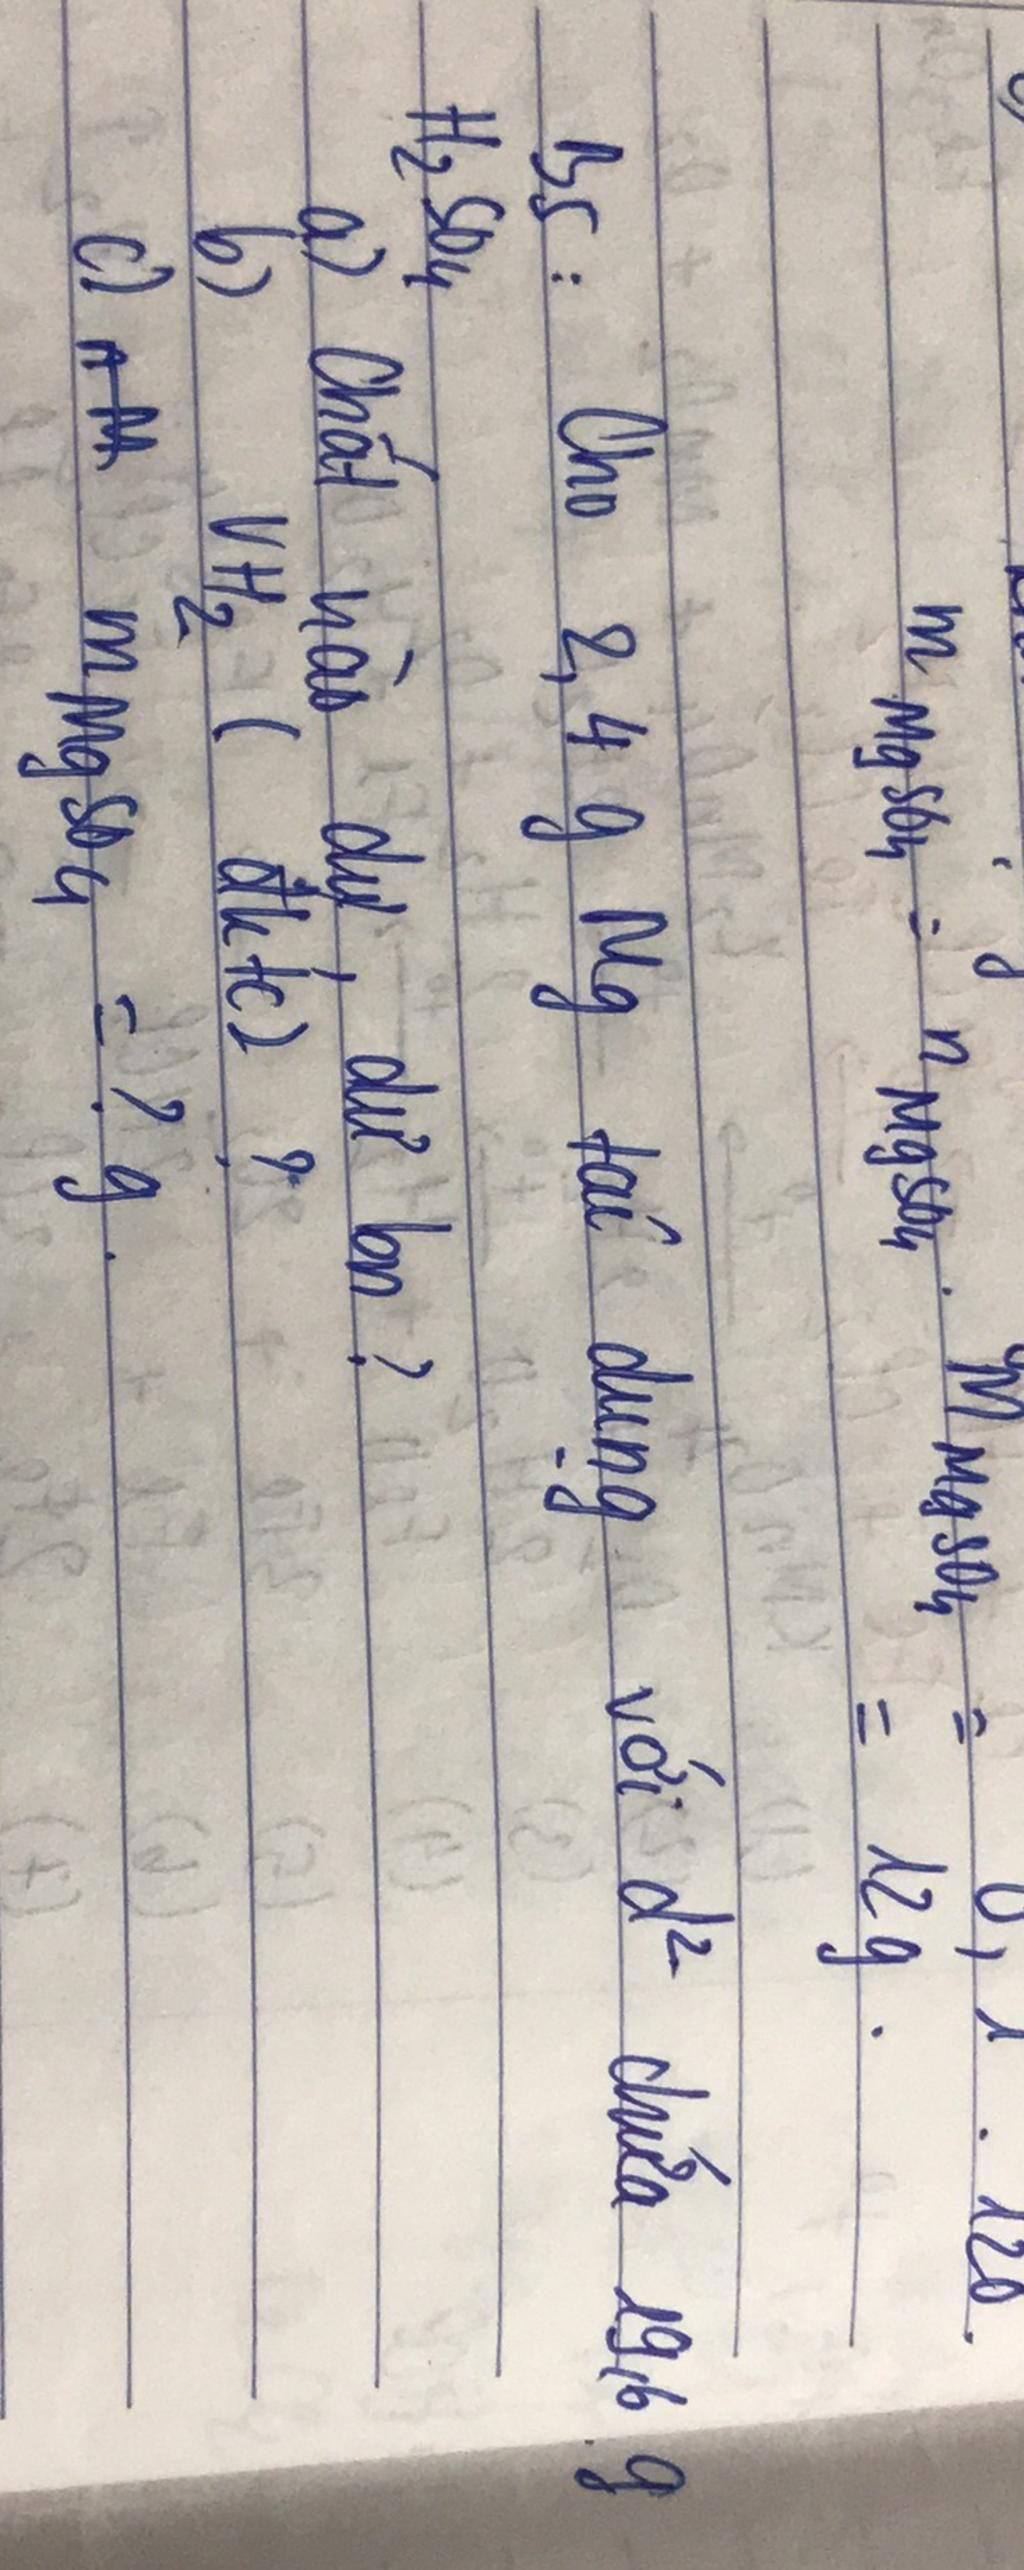 m MgSO4 = n MgSO4 . M MgSO4 = 0,1 . 120.
= 12g .
B5 : Cho 2,4 g Mg tác dụng với d² chứa 19,6 g
H2SO4
a) Chất nào dư, dư bn ?
b) VH2 ( đktc) ?
c) m MgSO4 = ? g .